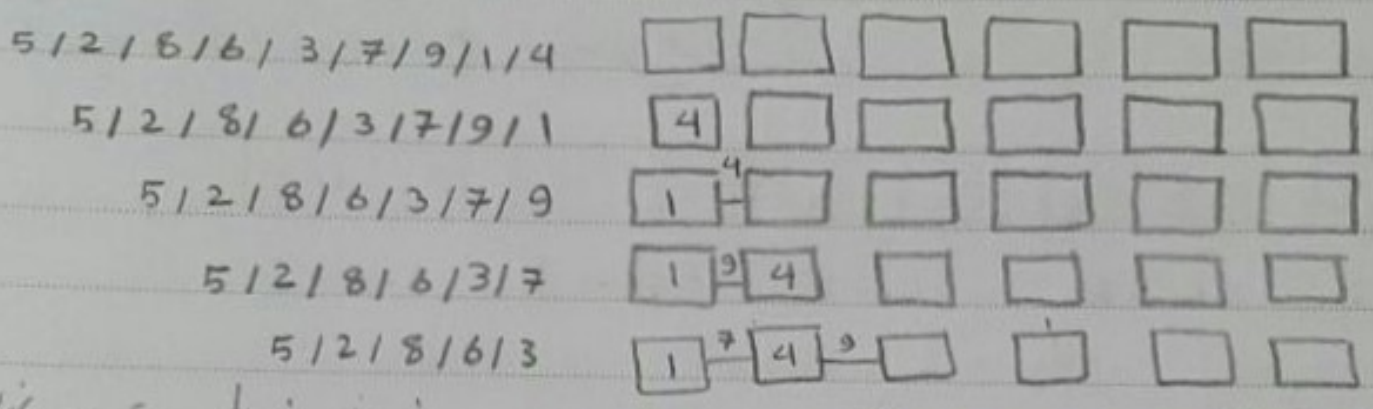 5 / 2 / 8 / 6 / 3 / 7 / 9 / 1 / 4
5 / 2 / 8 / 6 / 3 / 7 / 9 / 1 4
5 / 2 / 8 / 6 / 3 / 7 / 9 1 4
5 / 2 / 8 / 6 / 3 / 7 1 9 4
5 / 2 / 8 / 6 / 3 1 7 4 9